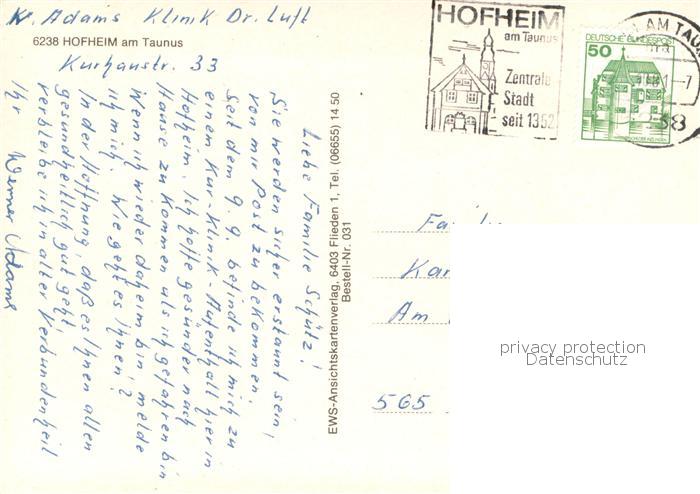 W. Adams Klinik Dr. Luft
6238 HOFHEIM am Taunus
Kurhausstr. 33
HOFHEIM
am Taunus
Zentrale
Stadt
seit 1352
AM TAU
DEUTSCHE BUNDESPOST
50
Liebe Familie Schütz!
Sie werden sicher erstaunt sein,
von mir Post zu bekommen.
Seit dem 9. 9. befinde ich mich zu
einem Kur-Klinik-Aufenthalt hier in
Hofheim. Ich hoffe gesünder nach
Hause zu kommen als ich gefahren bin
Wenn ich wieder daheim bin melde
ich mich. Wie geht es Ihnen?
In der Hoffnung, daß es Ihnen allen
gesundheitlich gut geht,
verbleibe ich in alter Verbundenheit
Ihr Werner Adams
EWS-Ansichtskartenverlag, 6403 Flieden 1, Tel. (06655) 14 50
Bestell-Nr. 031
Am
565
privacy protection
Datenschutz